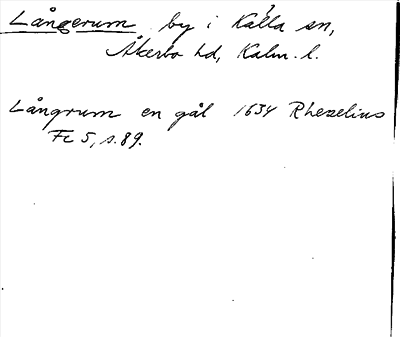 Långerum by i Källa sn,
Åkerbo hd, Kalm. l.
Långrum en gål 1634 Rhezelius
Fc 5, s. 89.